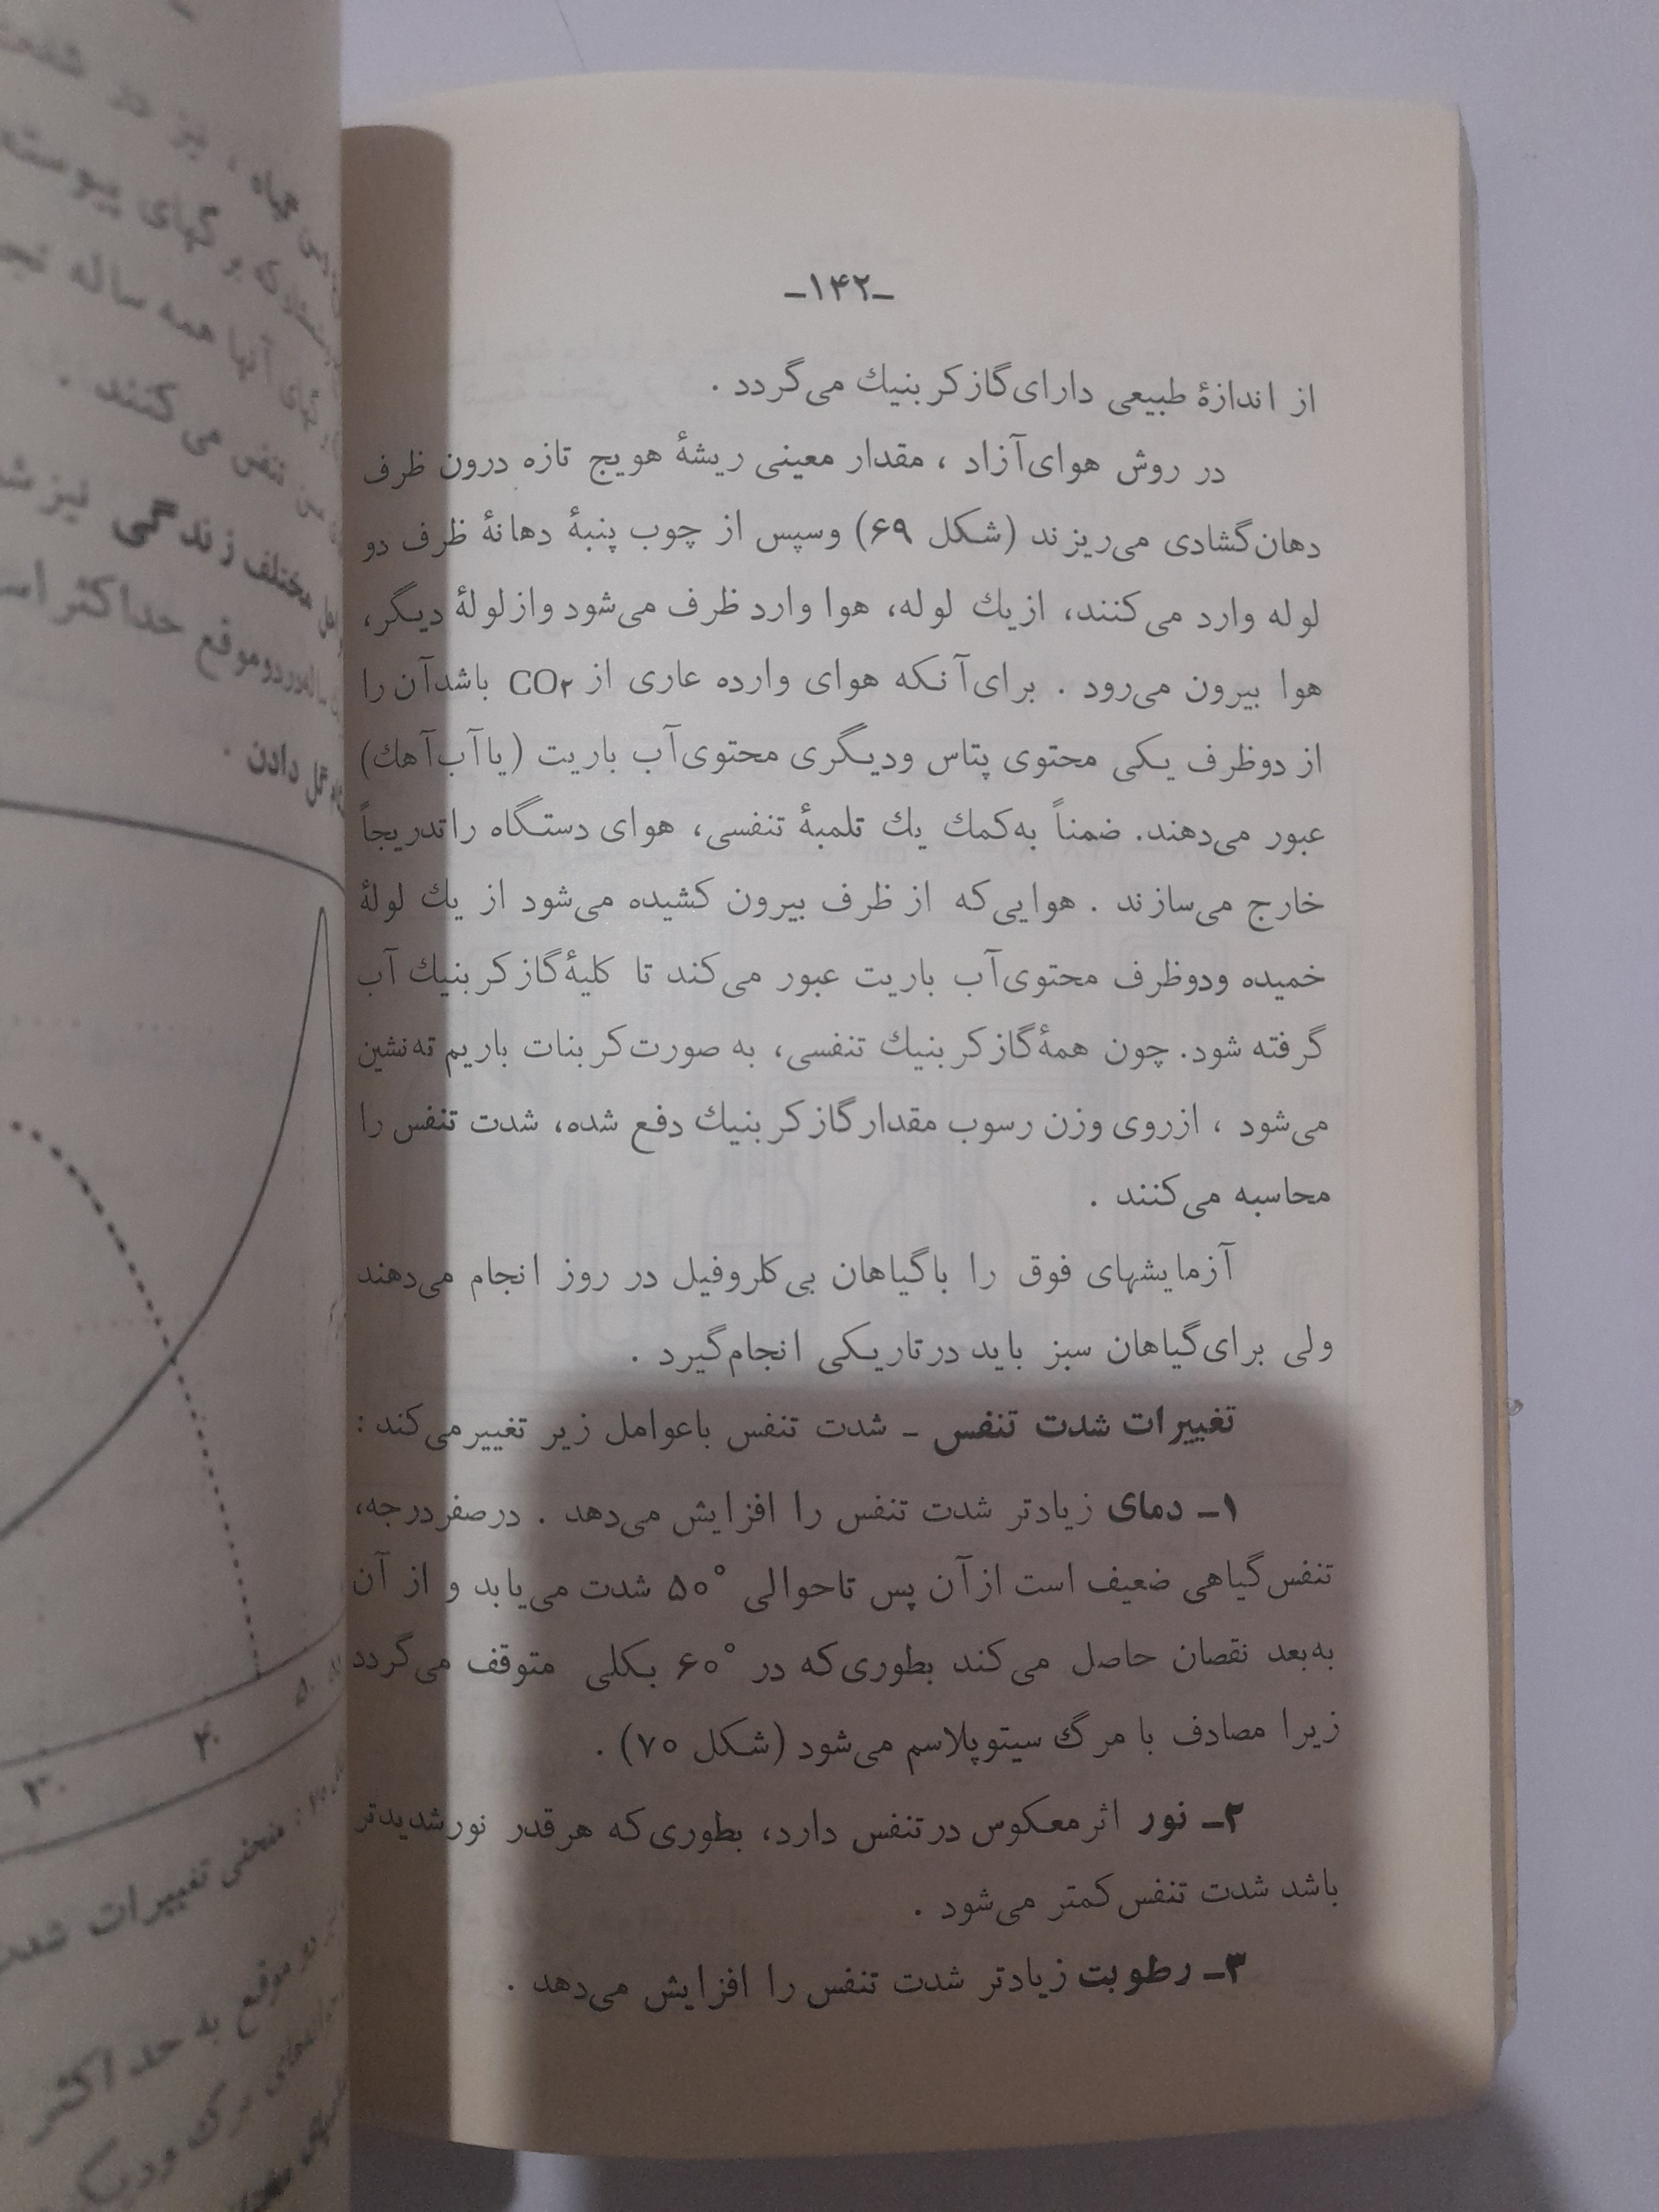 ـ۱۴۲ـ
از اندازهٔ طبیعی دارای گاز کربنیك می‌گردد .
در روش هوای آزاد ، مقدار معینی ریشهٔ هویج تازه درون ظرف
دهان گشادی می‌ریزند (شکل ۶۹) وسپس از چوب پنبهٔ دهانهٔ ظرف دو
لوله وارد می‌کنند، از یك لوله، هوا وارد ظرف می‌شود واز لولهٔ دیگر،
هوا بیرون می‌رود . برای آنکه هوای وارده عاری از CO۲ باشد آن را
از دوظرف یکی محتوی پتاس ودیگری محتوی آب باریت (یا آب آهك)
عبور می‌دهند. ضمناً به‌کمك یك تلمبهٔ تنفسی، هوای دستگاه را تدریجاً
خارج می‌سازند . هوایی‌که از ظرف بیرون کشیده می‌شود از یك لولهٔ
خمیده ودوظرف محتوی آب باریت عبور می‌کند تا کلیهٔ گاز کربنیك آب
گرفته شود. چون همهٔ گاز کربنیك تنفسی، به صورت کربنات باریم ته‌نشین
می‌شود ، ازروی وزن رسوب مقدار گاز کربنیك دفع شده، شدت تنفس را
محاسبه می‌کنند .
آزمایشهای فوق را با گیاهان بی‌کلروفیل در روز انجام می‌دهند
ولی برای گیاهان سبز باید در تاریکی انجام گیرد .
تغییرات شدت تنفس ـ شدت تنفس باعوامل زیر تغییر می‌کند :
۱ـ دمای زیادتر شدت تنفس را افزایش می‌دهد . درصفر درجه،
تنفس گیاهی ضعیف است از آن پس تاحوالی °۵۰ شدت می‌یابد و از آن
به‌بعد نقصان حاصل می‌کند بطوری‌که در °۶۰ بکلی متوقف می‌گردد
زیرا مصادف با مرگ سیتوپلاسم می‌شود (شکل ۷۰) .
۲ـ نور اثر معکوس در تنفس دارد، بطوری‌که هر قدر نور شدیدتر
باشد شدت تنفس کمتر می‌شود .
۳ـ رطوبت زیادتر شدت تنفس را افزایش می‌دهد .